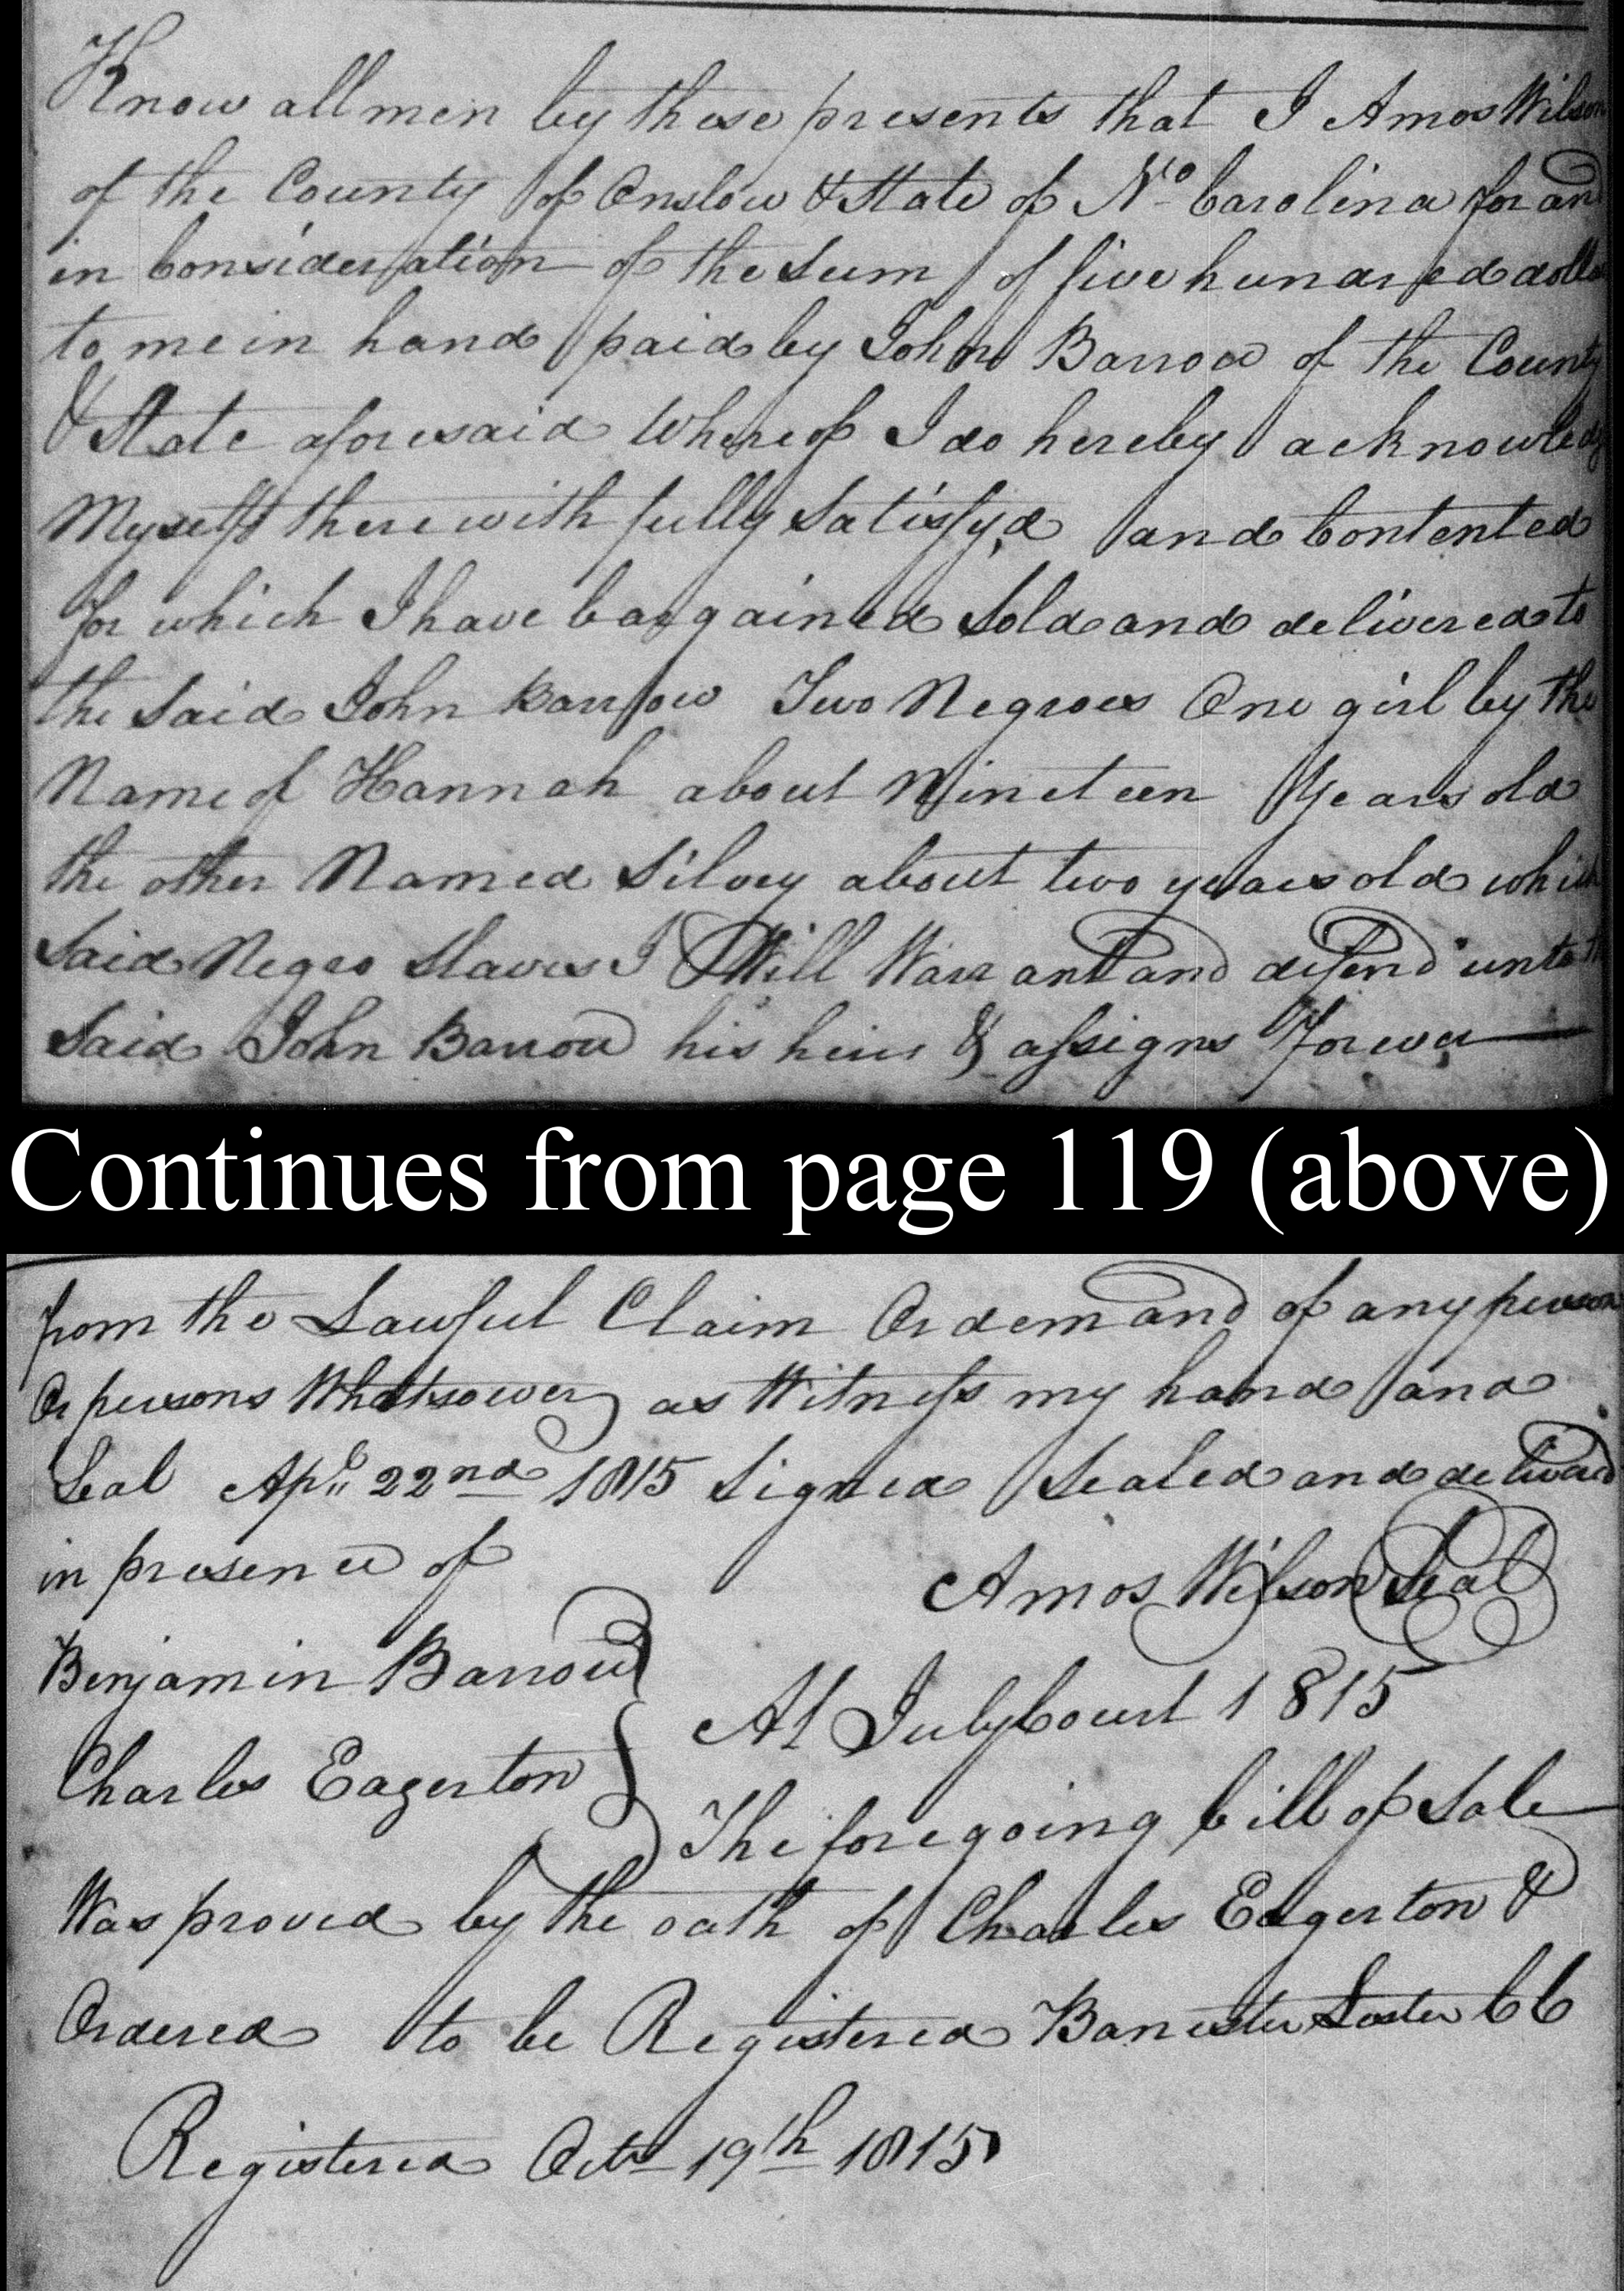 Know all men by these presents that I Amos Wilson
of the County of Onslow & State of No Carolina for and
in Consideration of the Sum of five hundred dolla
to me in hand paid by John Barrow of the County
& State aforesaid Whereof I do hereby acknowledg
Myself therewith fully Satisfy,d and Contented
for which I have bargained Sold and delivered to
the Said John Barrow Two Negroes One girl by the
Name of Hannah about Nineteen Years old
the other Named Silvey about two years old which
Said Negro Slaves I Will Warrant and defend unto th
Said John Barrow his heirs & assigns Forever
Continues from page 119 (above)
from the Lawful Claim Or demand of any person
Or persons Whatsoever as Witness my hand and
Seal Apl 22nd 1815 Signed Sealed and delivered
in presence of
Amos Wilson Seal
Benjamin Barrow
At July Court 1815
Charles Eagerton
The foregoing bill of Sale
Was proved by the oath of Charles Eagerton &
Ordered to be Registered Banester Lester CC
Registered Octr 19th 1815